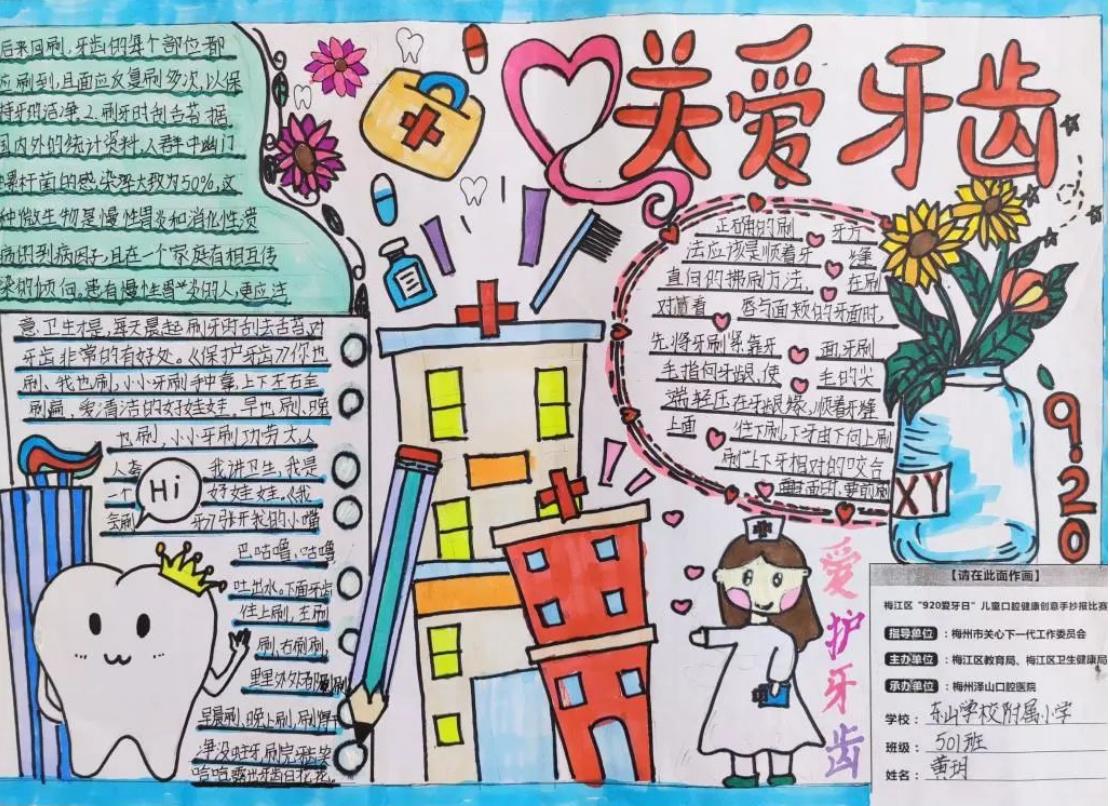 关爱牙齿
后来回刷,牙齿的每个部位都
应刷到,且面应反复刷多次,以保
持牙的洁净2.刷牙时刮舌苔,据
国内外的统计资料,人群中幽门
螺杆菌的感染率大致为50%,这
种微生物是慢性胃炎和消化性溃
疡的到病因子,且在一个家庭有相互传
染的倾向。患有慢性胃炎的人,更应注
意卫生才是,每天晨起刷牙时刮去舌苔,对
牙齿非常的有好处。《保护牙齿》你也
刷、我也刷,小小牙刷手中拿,上下左右全
刷遍,爱清洁的好娃娃。早也刷、晚
也刷,小小牙刷功劳大,人
人夸 我讲卫生,我是
一个 好娃娃。《我
会刷 牙》张开我的小嘴
巴,咕噜,咕噜
吐出水。下面牙齿
往上刷,左刷
刷,右刷刷,
里里外外都刷刷
早晨刷、晚上刷,刷得干
净没蛀牙,刷完牙齿笑
哈哈,露出牙齿白花花。
Hi
正确的刷 牙方
法应该是顺着牙 缝
直向的拂刷方法, 在刷
对着 唇与面颊的牙面时,
先将牙刷紧靠牙 面,牙刷
毛指向牙龈,使 毛的尖
端轻压在牙龈缘,顺着牙缝
上面 往下刷,下牙由下向上刷
刷上下牙相对的咬合
面时,要前
9.20
XY
爱护牙齿
【请在此面作画】
梅江区“920爱牙日”儿童口腔健康创意手抄报比赛
指导单位:梅州市关心下一代工作委员会
主办单位:梅江区教育局、梅江区卫生健康局
承办单位:梅州泽山口腔医院
学校:东山学校附属小学
班级:501班
姓名:黄玥